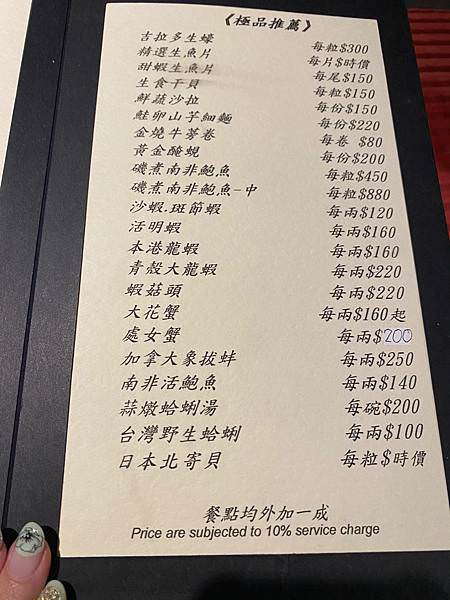 《極品推薦》
吉拉多生蠔 每粒$300
精選生魚片 每片$時價
甜蝦生魚片 每尾$150
生食干貝 每粒$150
鮮蔬沙拉 每份$150
鮭卵山芋細麵 每份$220
金燒牛蒡卷 每卷 $80
黃金醃蜆 每份$200
磯煮南非鮑魚 每粒$450
磯煮南非鮑魚-中 每粒$880
沙蝦.斑節蝦 每兩$120
活明蝦 每兩$160
本港龍蝦 每兩$160
青殼大龍蝦 每兩$220
蝦菇頭 每兩$220
大花蟹 每兩$160起
處女蟹 每兩$200
加拿大象拔蚌 每兩$250
南非活鮑魚 每兩$140
蒜燉蛤蜊湯 每碗$200
台灣野生蛤蜊 每兩$100
日本北寄貝 每粒$時價
餐點均外加一成
Price are subjected to 10% service charge